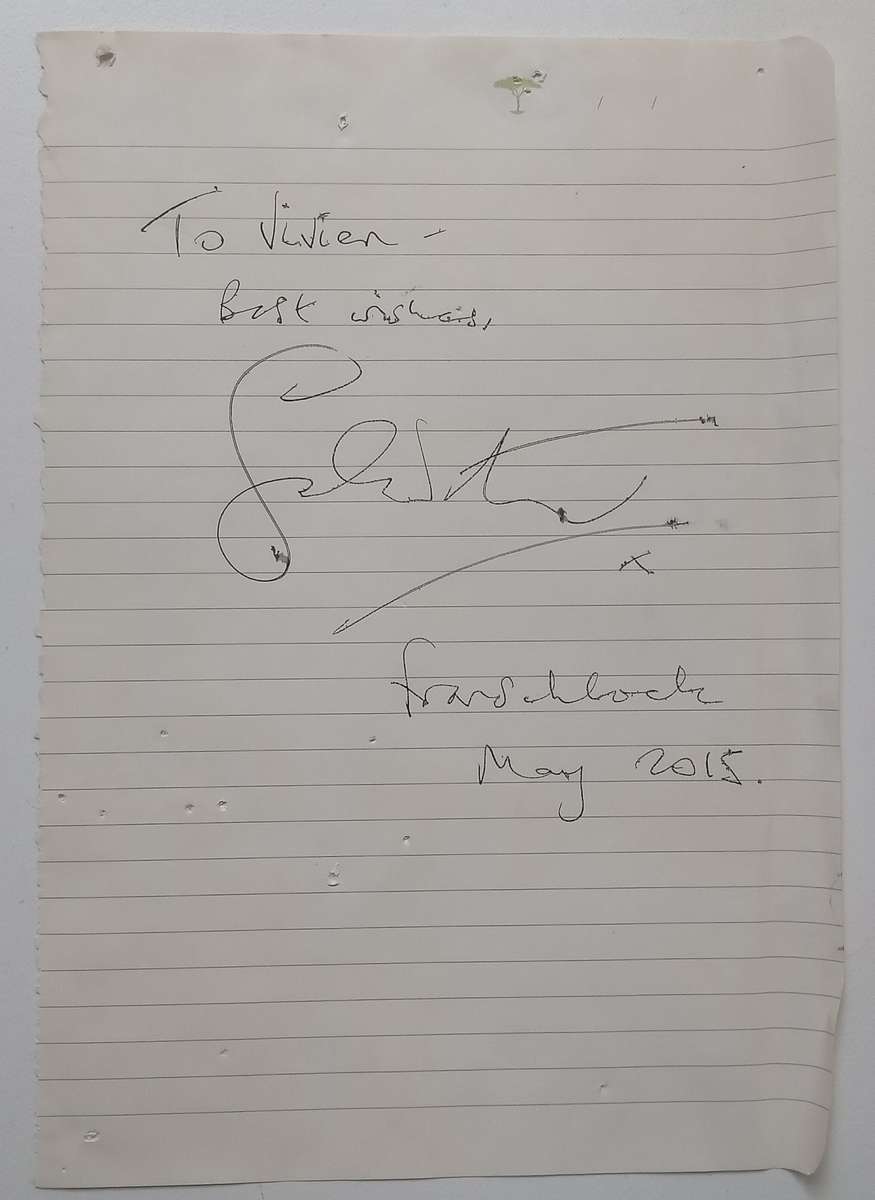 To Vivien -
Best wishes,
x
Franschhoek
May 2015.